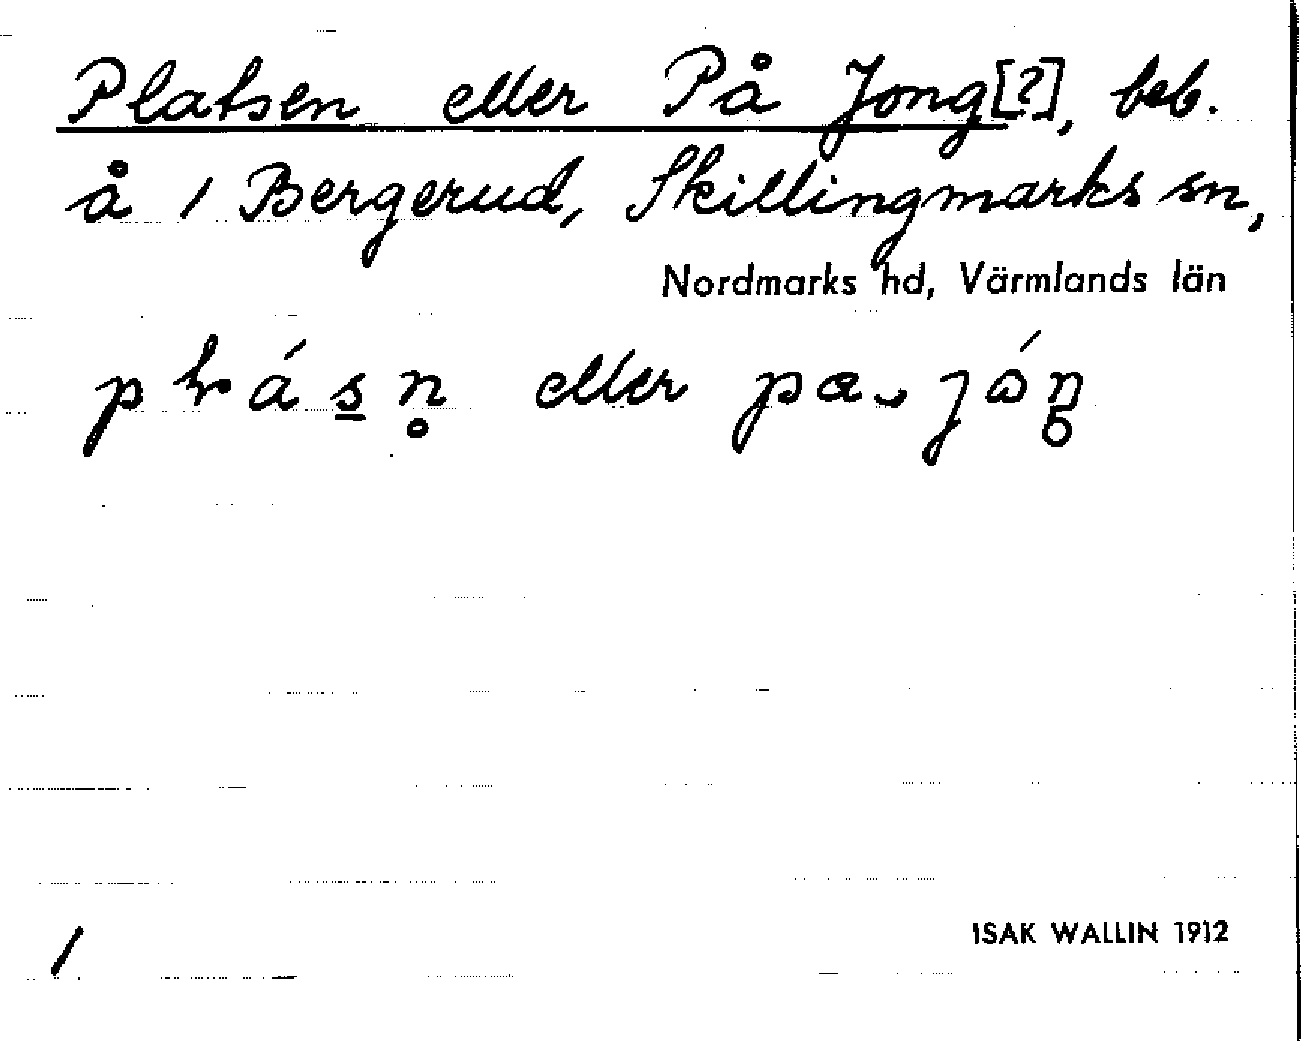 Platsen eller På Jong[?], beb.
å 1 Bergerud, Skillingmarks sn,
Nordmarks hd, Värmlands län
eller
1
ISAK WALLIN 1912